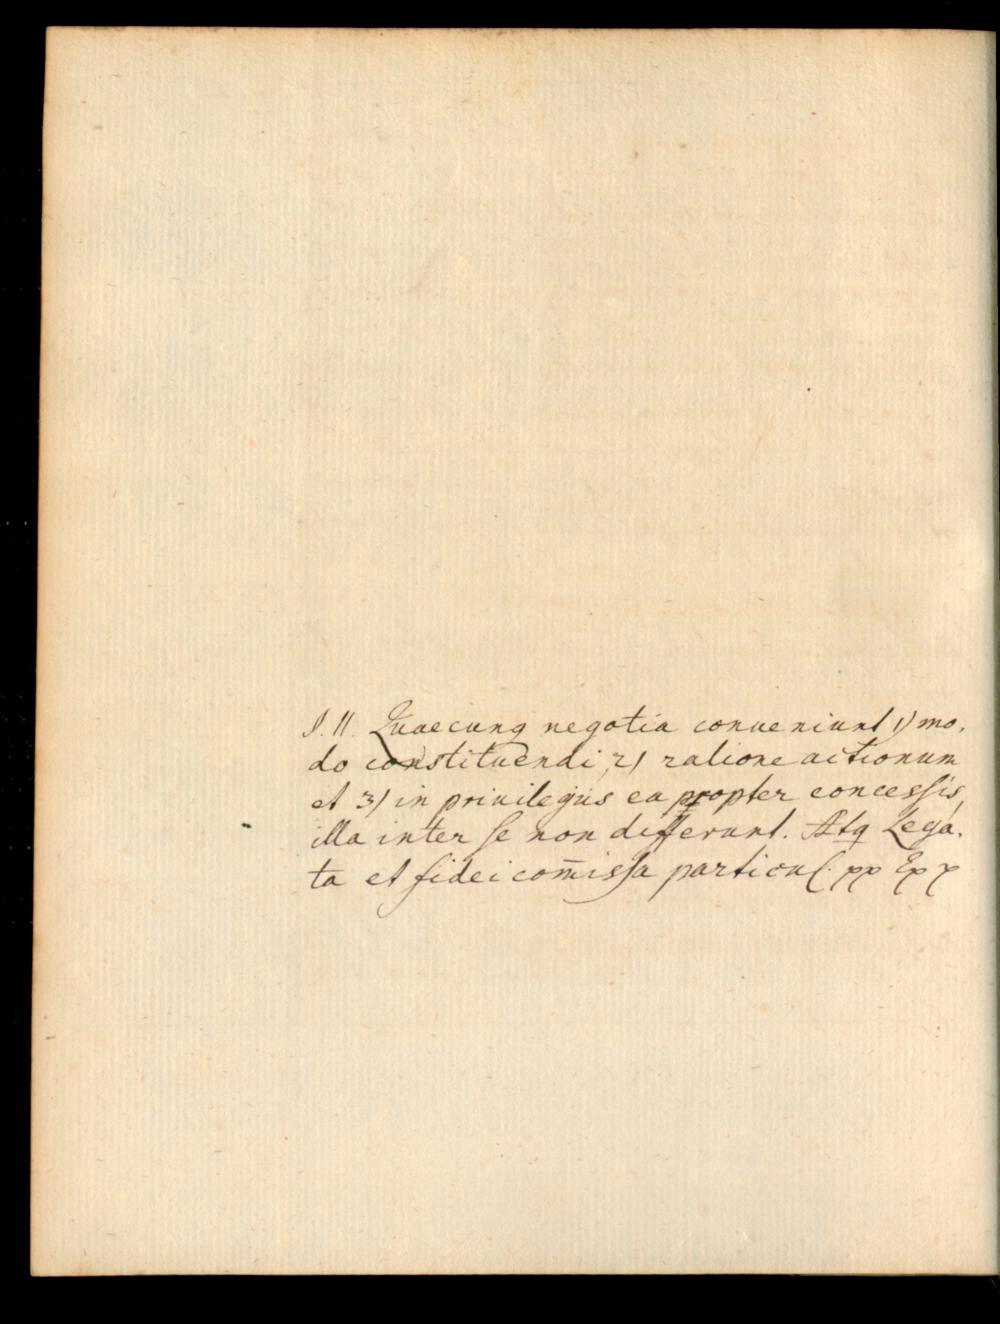 S. II. Quaecunq negotia conueniunt 1) mo,
do constituendi, 2) ratione actionum
et 3) in priuilegiis ea propter concessis,
illa inter se non differunt. Atq Lega,
ta et fideicom̄issa particul. pp Ep p